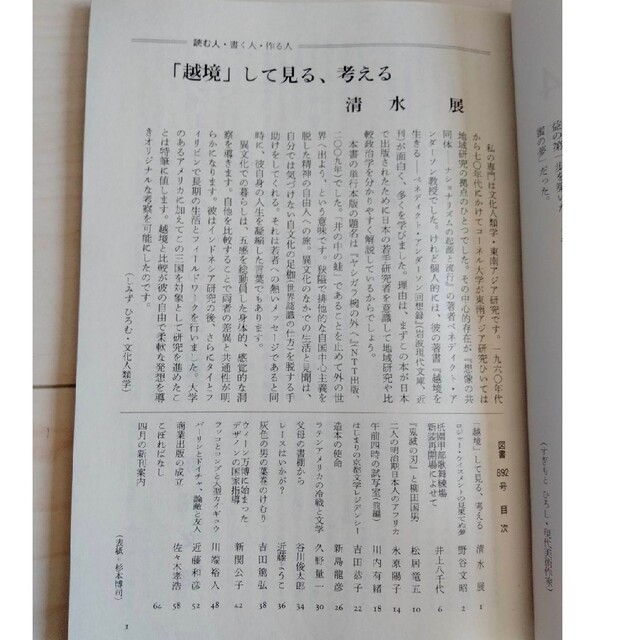 読む人・書く人・作る人
「越境」して見る、考える
清水 展
私の専門は文化人類学・東南アジア研究です。一九六〇年代
から七〇年代にかけてコーネル大学が東南アジア研究ひいては
地域研究の拠点のひとつでした。その中心的存在が『想像の共
同体──ナショナリズムの起源と流行』の著者ベネディクト・ア
ンダーソン教授でした。けれど個人的には、彼の著書『越境を
生きる──ベネディクト・アンダーソン回想録』(岩波現代文庫、近
刊)が面白く、多くを学びました。理由は、まずこの本が日本
で出版されたために日本の若手研究者を意識して地域研究や比
較政治学を分かりやすく解説しているからでしょう。
本書の単行本版の題名は『ヤシガラ椀の外へ』(NTT出版、
二〇〇九年)でした。「井の中の蛙」であることを止めて外の世
界へ出よう、という意味です。狭隘で排他的な自国中心主義を
脱した精神の自由人への旅。異文化のなかでの生活と見聞は、
自分では気づけない自文化の足枷(世界認識の仕方)を脱する手
助けをしてくれる。それは若者への熱いメッセージであると同
時に、彼自身の人生を凝縮した言葉でもあります。
異文化での暮らしは、五感を総動員した身体的、感覚的な洞
察を導きます。自他を比較することで両者の差異と共通性が明
らかになります。彼はインドネシア研究の後、さらにタイとフ
ィリピンで長期の生活とフィールドワークを行いました。大学
のあるアメリカに加えてこの三国を対象として研究を進めたこ
とは特筆に値します。越境と比較が彼の自由で柔軟な発想を導
きオリジナルな考察を可能にしたのです。
(しみず ひろむ・文化人類学)
図書 892号 目次
「越境」して見る、考える 清水 展 1
ロジャー・ケイスメントの見果てぬ夢 野谷文昭 2
祇園甲部歌舞練場
新装再開場によせて 井上八千代 6
『鬼滅の刃』と柳田国男 松居竜五 10
二人の明治期日本人のアフリカ 永原陽子 14
午前四時の試写室(前編) 川内有緒 18
はじまりの京都文学レジデンシー 吉田恭子 22
造本の使命 新島龍彦 26
ラテンアメリカの冷戦と文学 久野量一 30
父母の書棚から 谷川俊太郎 34
レースはいかが? 近藤ようこ 36
灰色の男の葉巻のけむり 吉田篤弘 38
ウィーン万博に始まった
デザインの国家指導 新関公子 42
ラッコとコンブと人型カイギュウ 川端裕人 48
バーリンとドイチャー、論敵と友人 近藤和彦 52
商業出版の成立 佐々木孝浩 58
こぼればなし 64
四月の新刊案内
(表紙・杉本博司)
1
(すぎもと ひろし・現代美術作家)